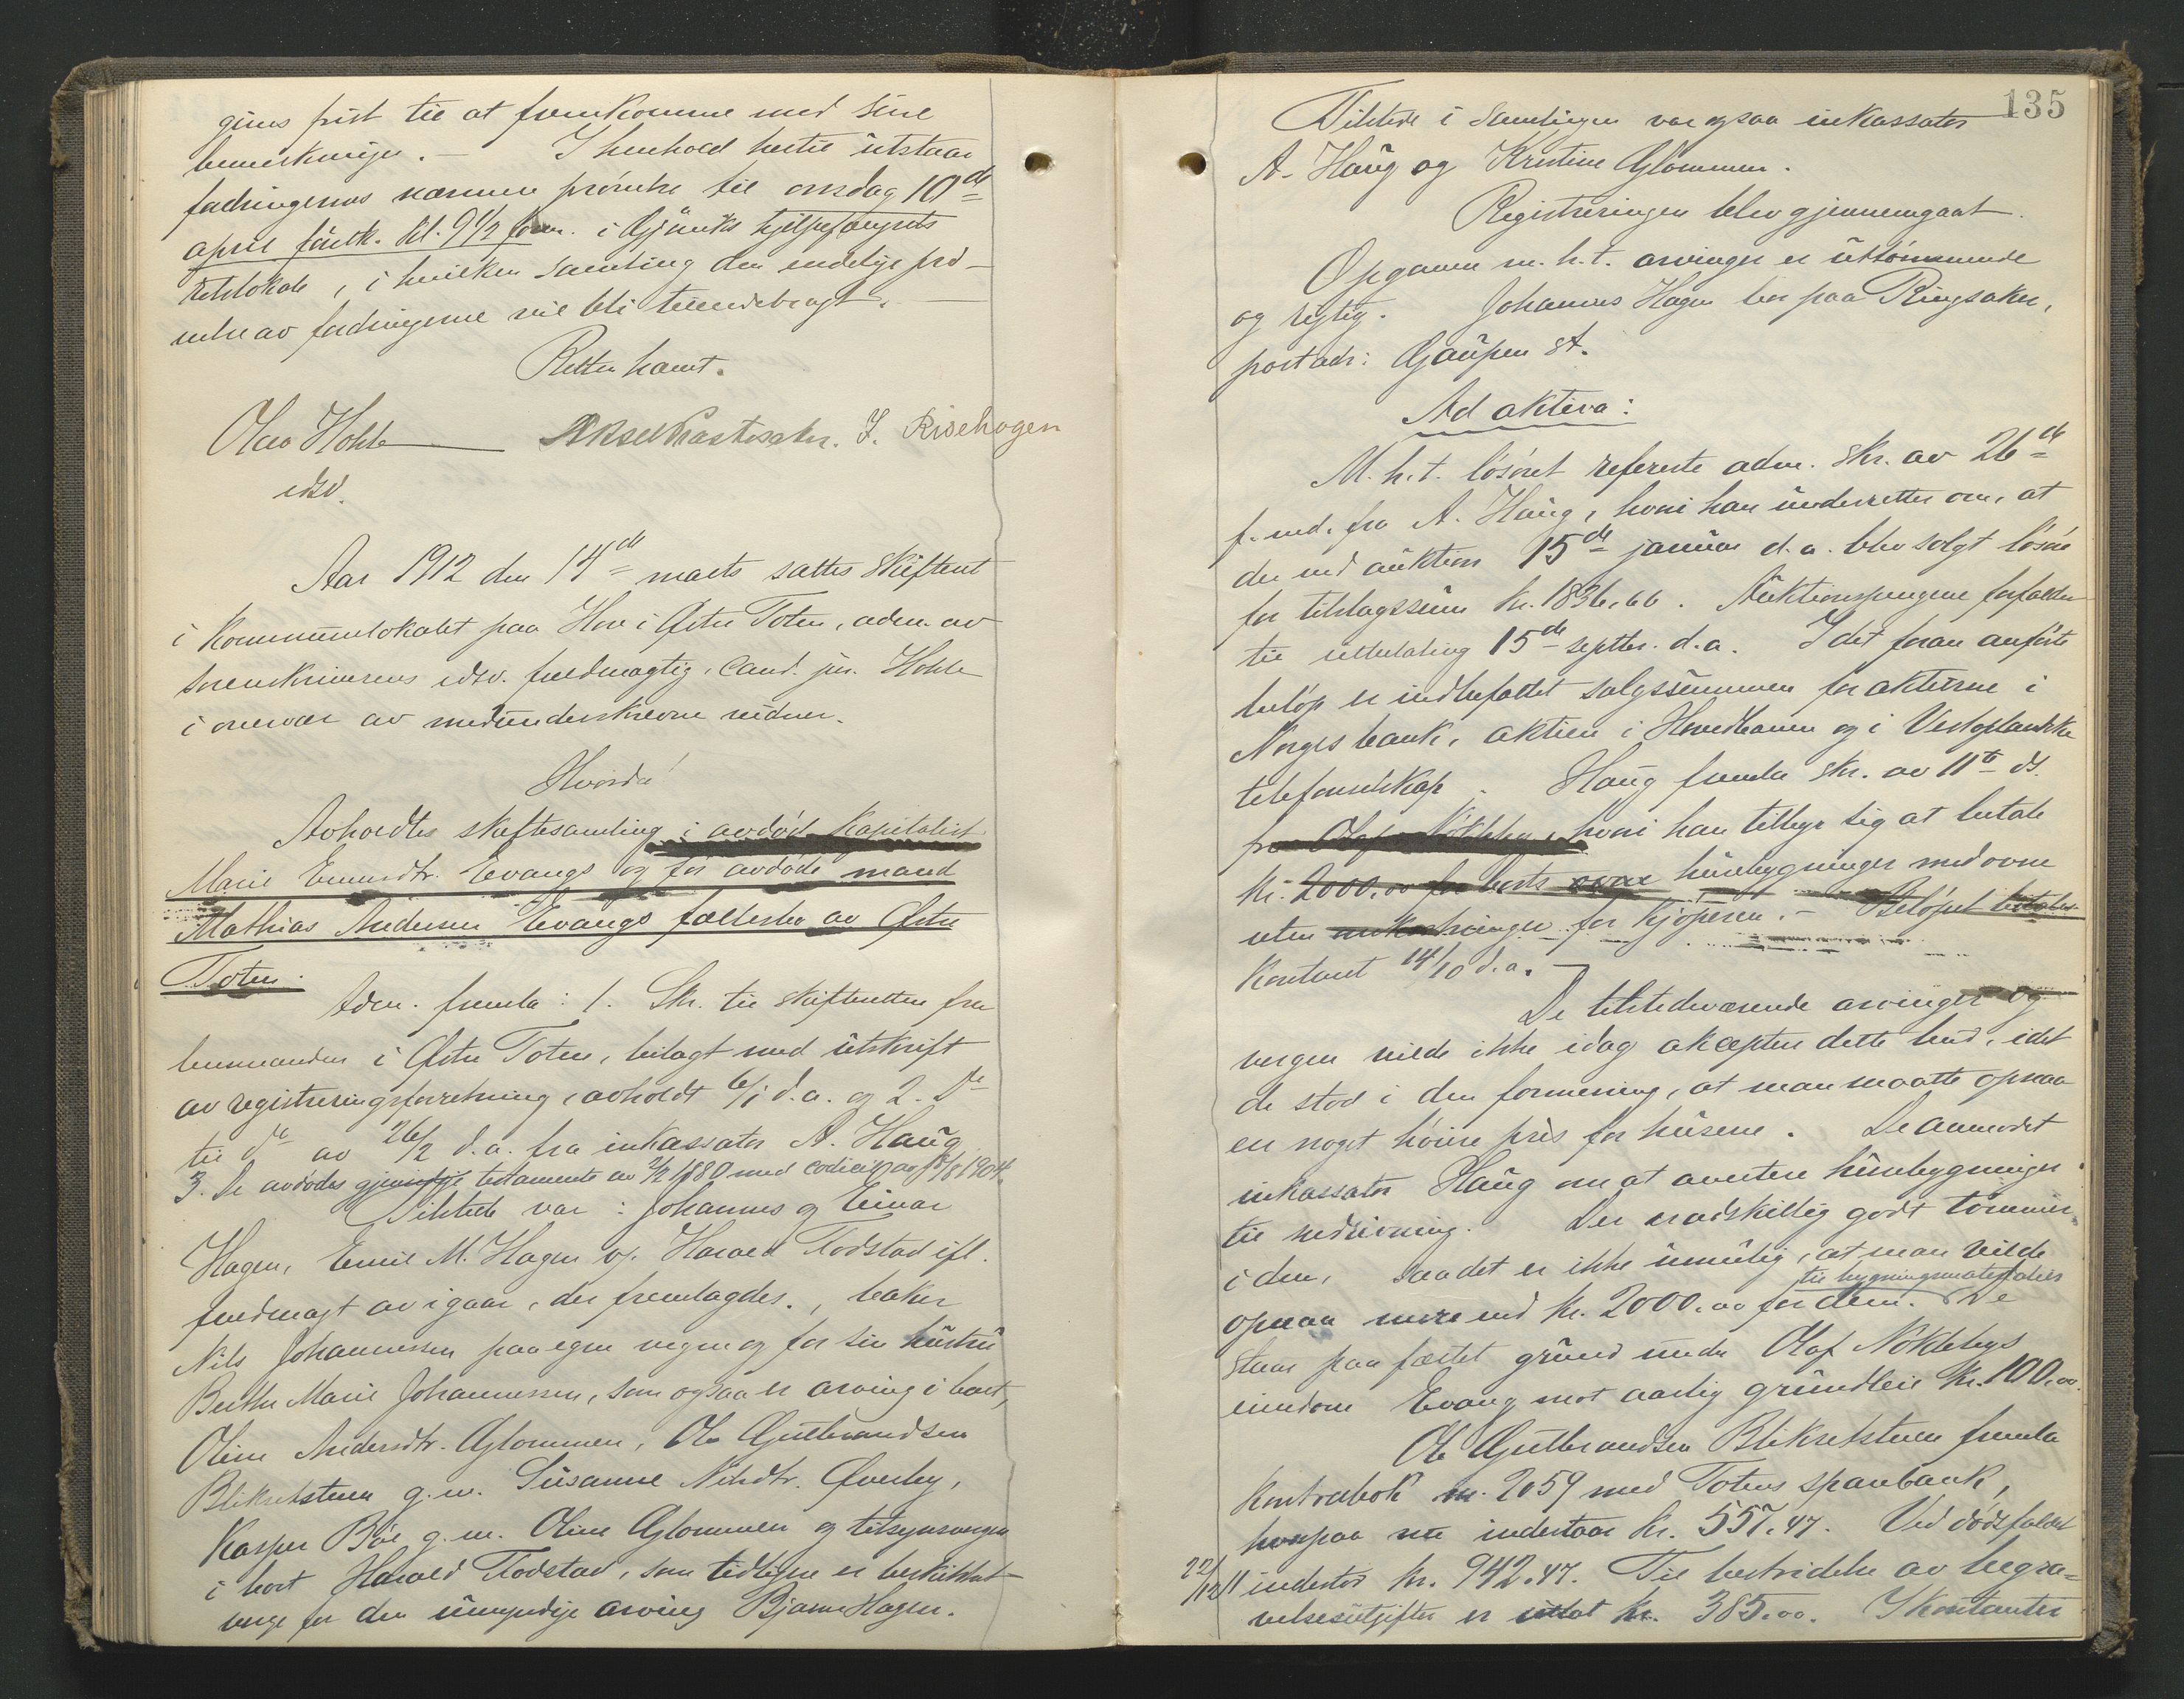 gives frist til at fremkomme med sine
bemerkninger. – I henhold hertil utstaar
fordringernes nærmere prøvelse til onsdag 10de
april førstk. kl. 9 1/2 form. i Gjøviks hjelpefængsels
retslokale, i hvilken samling den endelige prø-
velse av fordringerne vil bli tilendebragt.
Retten hævet.
Olav Hohle J. Risehagen
edsv.
Aar 1912 den 14de marts sattes skifteret
i kommunelokalet paa Hov i Østre Toten, adm. av
sorenskriverens edsv. fuldmægtig, cand. jur. Hohle
i overvær av medunderskrevne vidner.
Hvorda!
Avholdtes skiftesamling i avdød kapitalist
Marie Evensdtr. Evangs og før avdøde mand
Mathias Andersen Evangs fællesbo av Østre
Toten.
Adm. fremla: 1. Skr. til skifteretten fra
lensmanden i Østre Toten, bilagt med utskrift
av registreringsforretning, avholdt 6/1 d.a. og 2. Do
til do av 26/2 d.a. fra inkassator A. Haug.
3. De avdødes gjensidige testamente av 2/2 1880 med codicil av 18/8 1904.
Tilstede var: Johannes og Einar
Hagen, Emil M. Hagen v/ Harald Todstad ifl.
fuldmagt av igaar, der fremlagdes., baker
Nils Johannessen paa egne vegne og for sin hustru
Berthe Marie Johannessen, som ogsaa er arving i boet,
Oline Andersdtr. Glommen, Ole Gulbrandsen
Bliksethstuen g.m. Susanne Nilsdtr. Øverby,
Kasper Bøe g.m. Oline Glommen og tilsynsvergen
i boet Harald Todstad, som tidligere er beskikket
verge for den umyndige arving Bjarne Hagen.
135
Tilstede i samlingen var ogsaa inkassator
A. Haug og Kristine Glommen.
Registreringen blev gjennemgaat.
Opgaven m.h.t. arvinger er uttømmende
og rigtig. Johannes Hagen bor paa Ringsaker,
postadr: Gaupen st.
Ad aktiva:
M.h.t. løsøret refererte adm. skr. av 26de
f. md. fra A. Haug, hvori han underretter om, at
der ved auktion 15de januar d.a. blev solgt løsøre
for tilslagssum kr. 1836.66. Auktionspengene forfalder
til utbetaling 15de septbr. d.a. I det foran anførte
beløp er indbefattet salgssummen for aktierne i
Norges bank, aktien i Hovedbanen og i Vestoplandske
telefonselskap. Haug fremla skr. av 11te ds.
fra Olaf Nøkleby, hvori han tilbyr sig at betale
kr. 2000.00 for boets husbygninger med ovne
uten omkostninger for kjøperen. – Beløpet betales
kontant 14/10 d.a. –
De tilstedeværende arvinger og
vergen vilde ikke idag akceptere dette bud, idet
de stod i den formening, at man maatte opnaa
en noget høiere pris for husene. De anmodet
inkassator Haug om at avertere husbygningen
til nedrivning. Der er adskillig godt tømmer
i den, saa det er ikke umulig, at man vilde
til bygningsmaterialier
opnaa mere end kr. 2000.00 for dem. De
staar paa fæstet grund under Olaf Nøklebys
eiendom Evang mot aarlig grundleie kr. 100.00.
Ole Gulbrandsen Bliksethstuen fremla
kontrabok nr. 2059 med Totens sparebank,
hvorpaa nu indestaar kr. 557.47. Ved dødsfaldet
22/12 11 indestod kr. 942.47. Til bestridelse av begra-
velsesutgifter er uttat kr. 385.00. I kontanter